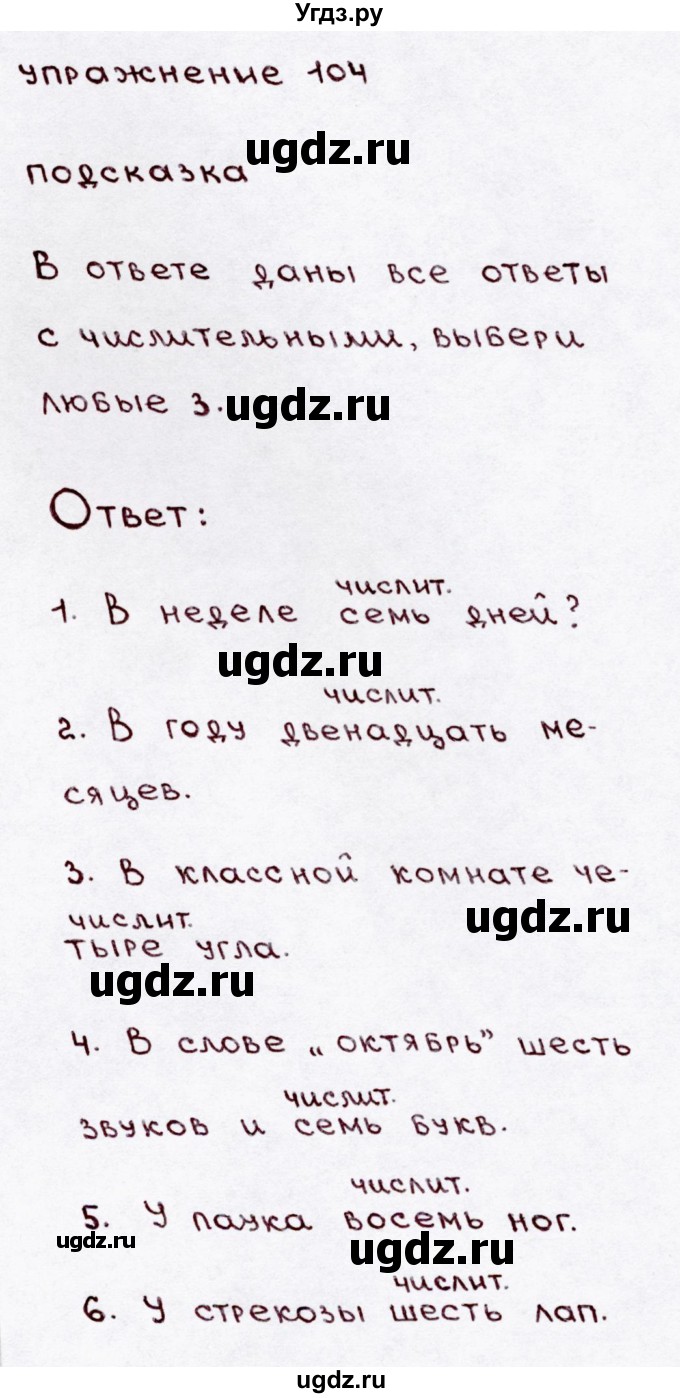 Угдз.ру
упражнение 104
ugdz.ru
подсказка
В ответе даны все ответы
с числительными, выбери
любые 3.
ugdz.ru
Ответ:
числит.
1. В неделе семь дней?
ugdz.ru
числит.
2. В году двенадцать ме-
сяцев.
3. В классной комнате че-
ugdz.ru
числит.
тыре угла.
ugdz.ru
4. В слове „октябрь” шесть
числит.
звуков и семь букв.
числит.
5. У паука восемь ног.
ugdz.ru
ugdz.ru
числит.
6. У стрекозы шесть лап.
ugdz.ru